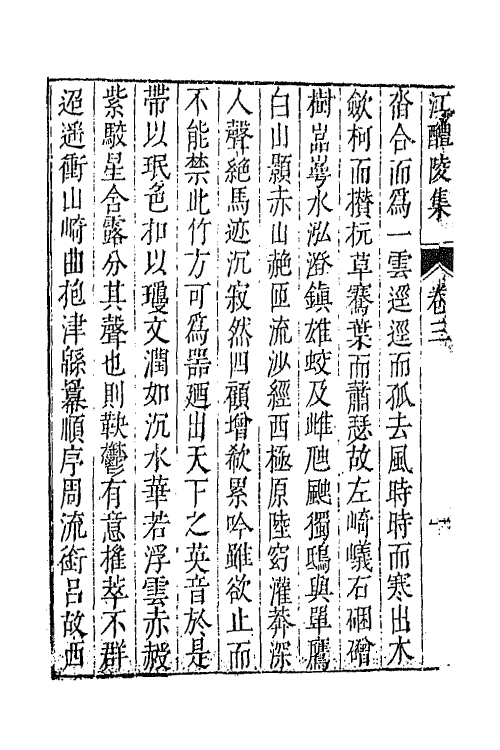 江醴陵集 卷三
沓合而為一雲逕逕而孤去風時時而寒出木
歛柯而攅抏草騫葉而蕭瑟故左崎㠖石硱磳
樹嵓崿水泓澄鎮雄蛟及雌虺颷獨鴟與單鷹
白山顥赤山赩匝流沙經西極原陸窈灌莽深
人聲絶馬迹沉寂然四顧增欷累吟雖欲止而
不能禁此竹方可為器廼出天下之英音於是
帶以珉色扣以瓊文潤如沉水華若浮雲赤㲉
紫駮星含露分其聲也則鞅鬱有意摧萃不群
迢遞衝山崎曲抱津緜羃順序周流銜呂故西